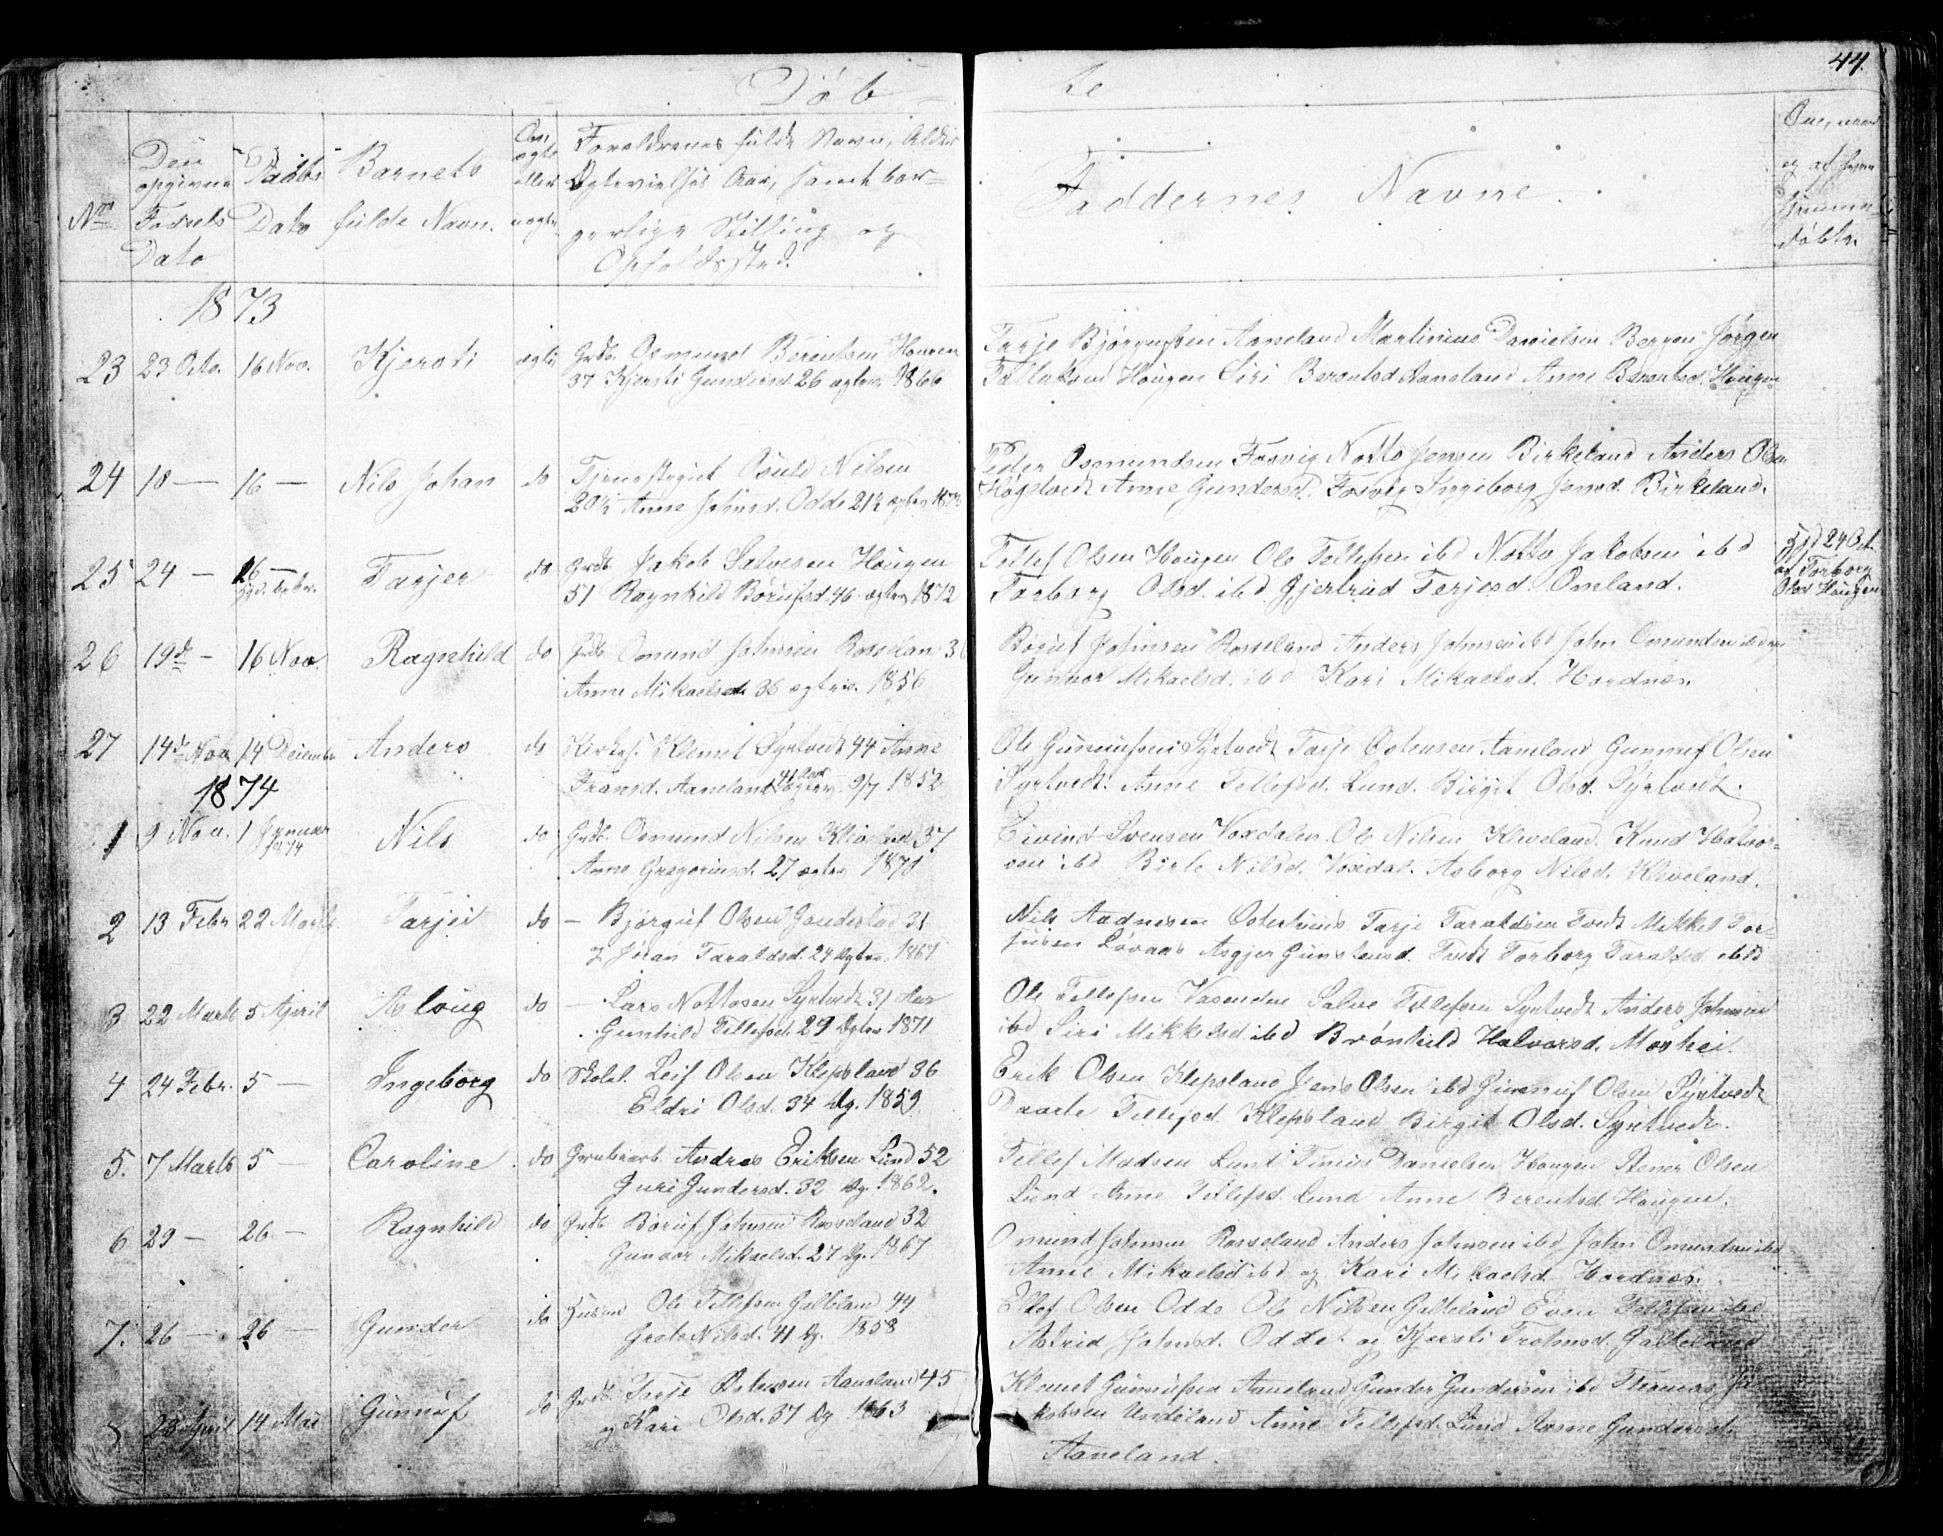 44.
Døb - te
Nr
Den opgivne Fødsels Dato
Daabs Dato
Barnets fulde Navn.
Om ægte eller uægte
Forældrenes fulde Navn, Alder
Ægtevielses Aar, samt bor-
gerlige Stilling og
Opholdssted.
Faddernes Navne.
og af hvem
hjemme
døbte.
1873
23 23 Octo. 16 Nov. Kjersti ægte Grdb. Osmund Berentsen Hougen
37 Kjersti Gundersd 26 ægtev. 1866
Tarje Bjørgufsen Aaneland Martinius Danielsen Bergen Jørgen
Hougen Siri Berentsd Aaneland Anne Berentsd. Hougen
24 18 — 16 — Nils Johan do Tjenestegut Osuld Nilsen
20½ Anne Johnsd. Odde 21½ ægtev 1873
Peder Osmundsen Fosvig Notto Jensen Birkeland Anders Olsen
Høgetvedt Anne Gundersd. Fosvig Ingeborg Jensd. Birkeland.
25 24 — 26 — Tarjer do Grdb. Jakob Salvesen Hougen
51 Ragnhild Børufsd 46 ægtev 1872
Tellef Olsen Hougen Ole Tellefsen ibd Notto Jakobsen ibd
Torborg Olsd. ibd Gjertrud Terjesd. Omland.
Hjd 24 Oct.
af Torborg
Olsd Hougen
26 19de — 16 Nov. Ragnhild do Grdb. Omund Johnsen Rosseland 36
Anne Mikaelsd. 36 ægtev. 1856
Børuf Johnsen Rosseland Anders Johnsen ibd John Omundsen
Gunvor Mikaelsd. ibd Kari Mikaelsd. Hordnes.
27 14de Nov. 14 December Anders do Kirkes. Klemet Syrtvedt 44 Anne
Fransd. Aaneland 41 Aar ægtev. 9/7 1852
Ole Gunnufsen Syrtvedt Tarje Ostensen Aaneland Gunnuf Olsen
Syrtvedt. Anne Tellefsd. Lund. Birgit Olsd. Syrtvedt.
1874
1 9 Nov. 1 Januar 1874 Nils do Grdb Osmund Nilsen Kleveland 37
Anne Gregoriusd. 27 ægtev 1871
Eivind Svensen Voxdalen Ole Nilsen Kleveland. Knud Halvor-
sen ibd Birte Nilsd. Voxdal. Asborg Nilsd. Kleveland.
2 13 Febr 22 Marts Tarjei do — Bjørguf Olsen 31
Joran Taraldsd. 24 Ægtev. 1867
Nils Aadnesen Ostenhuus Tarje Taraldsen Tvedt Mikkel Tor-
jusen Løvaas Asgjer Gunstensd. Tvedt Torborg Taraldsd ibd
3 22 Marts 5 April Aslaug do — Lars Nottosen Syrtvedt 31 Aar
Gunhild Tellefsd. 29 Ægtev 1871
Ole Tellefsen Vasenden Salve Tellefsen Syrtvedt Anders Johnsen
ibd Siri Mikkelsd ibd Brønhild Halvorsd. Moshei.
4 24 Febr. 5 — Ingeborg do Skolel. Leif Olsen Klepsland 36
Eldri Olsd. 34 Æg. 1859.
Erik Olsen Klepsland Jens Olsen ibd Gunnuf Olsen Syrtvedt
Daarte Tellefsd. Klepsland Birgit Olsd. Syrtvedt.
5. 7 Marts 5 — Caroline do Grubearb. Andres Eriksen Lund 52
Guri Gundersd. 32 Æg. 1862.
Tellef Madsen Lund Tinius Danielsen Hougen Stener Olsen
Lund Anne Tellefsd. Lund Anne Berentsd Hougen.
6 29 — 26 — Ragnhild do Grdb. Boruf Johnsen Rosseland 32
Gunvor Mikaelsd. 27 Æg. 1867
Omund Johnsen Rosseland Anders Johnsen ibd John Omundsen ibd
Anne Mikaelsd ibd og Kari Mikaelsd. Hordnes.
7. 26 — 26 — Gunder do Husm Ole Tellefsen Galteland 44
Grete Nilsd. 41 Æg. 1858
Ellef Olsen Odde Ole Nilsen Galteland Even Tellefsen ibd
Astrid Johnsd. Odde og Kjersti Fromsd. Galteland
8 28 April 14 Mai Gunnuf do Grdb. Terje Ostensen Aaneland 45
og Kari Olsd. 37 Æg 1863
Klemet Gunnufsen Aaneland Gunder Gundersen ibd Thomas Ja-
kobsen Undeland Anne Tellefsd. Lund Aasne Gundersd.
Aaneland.